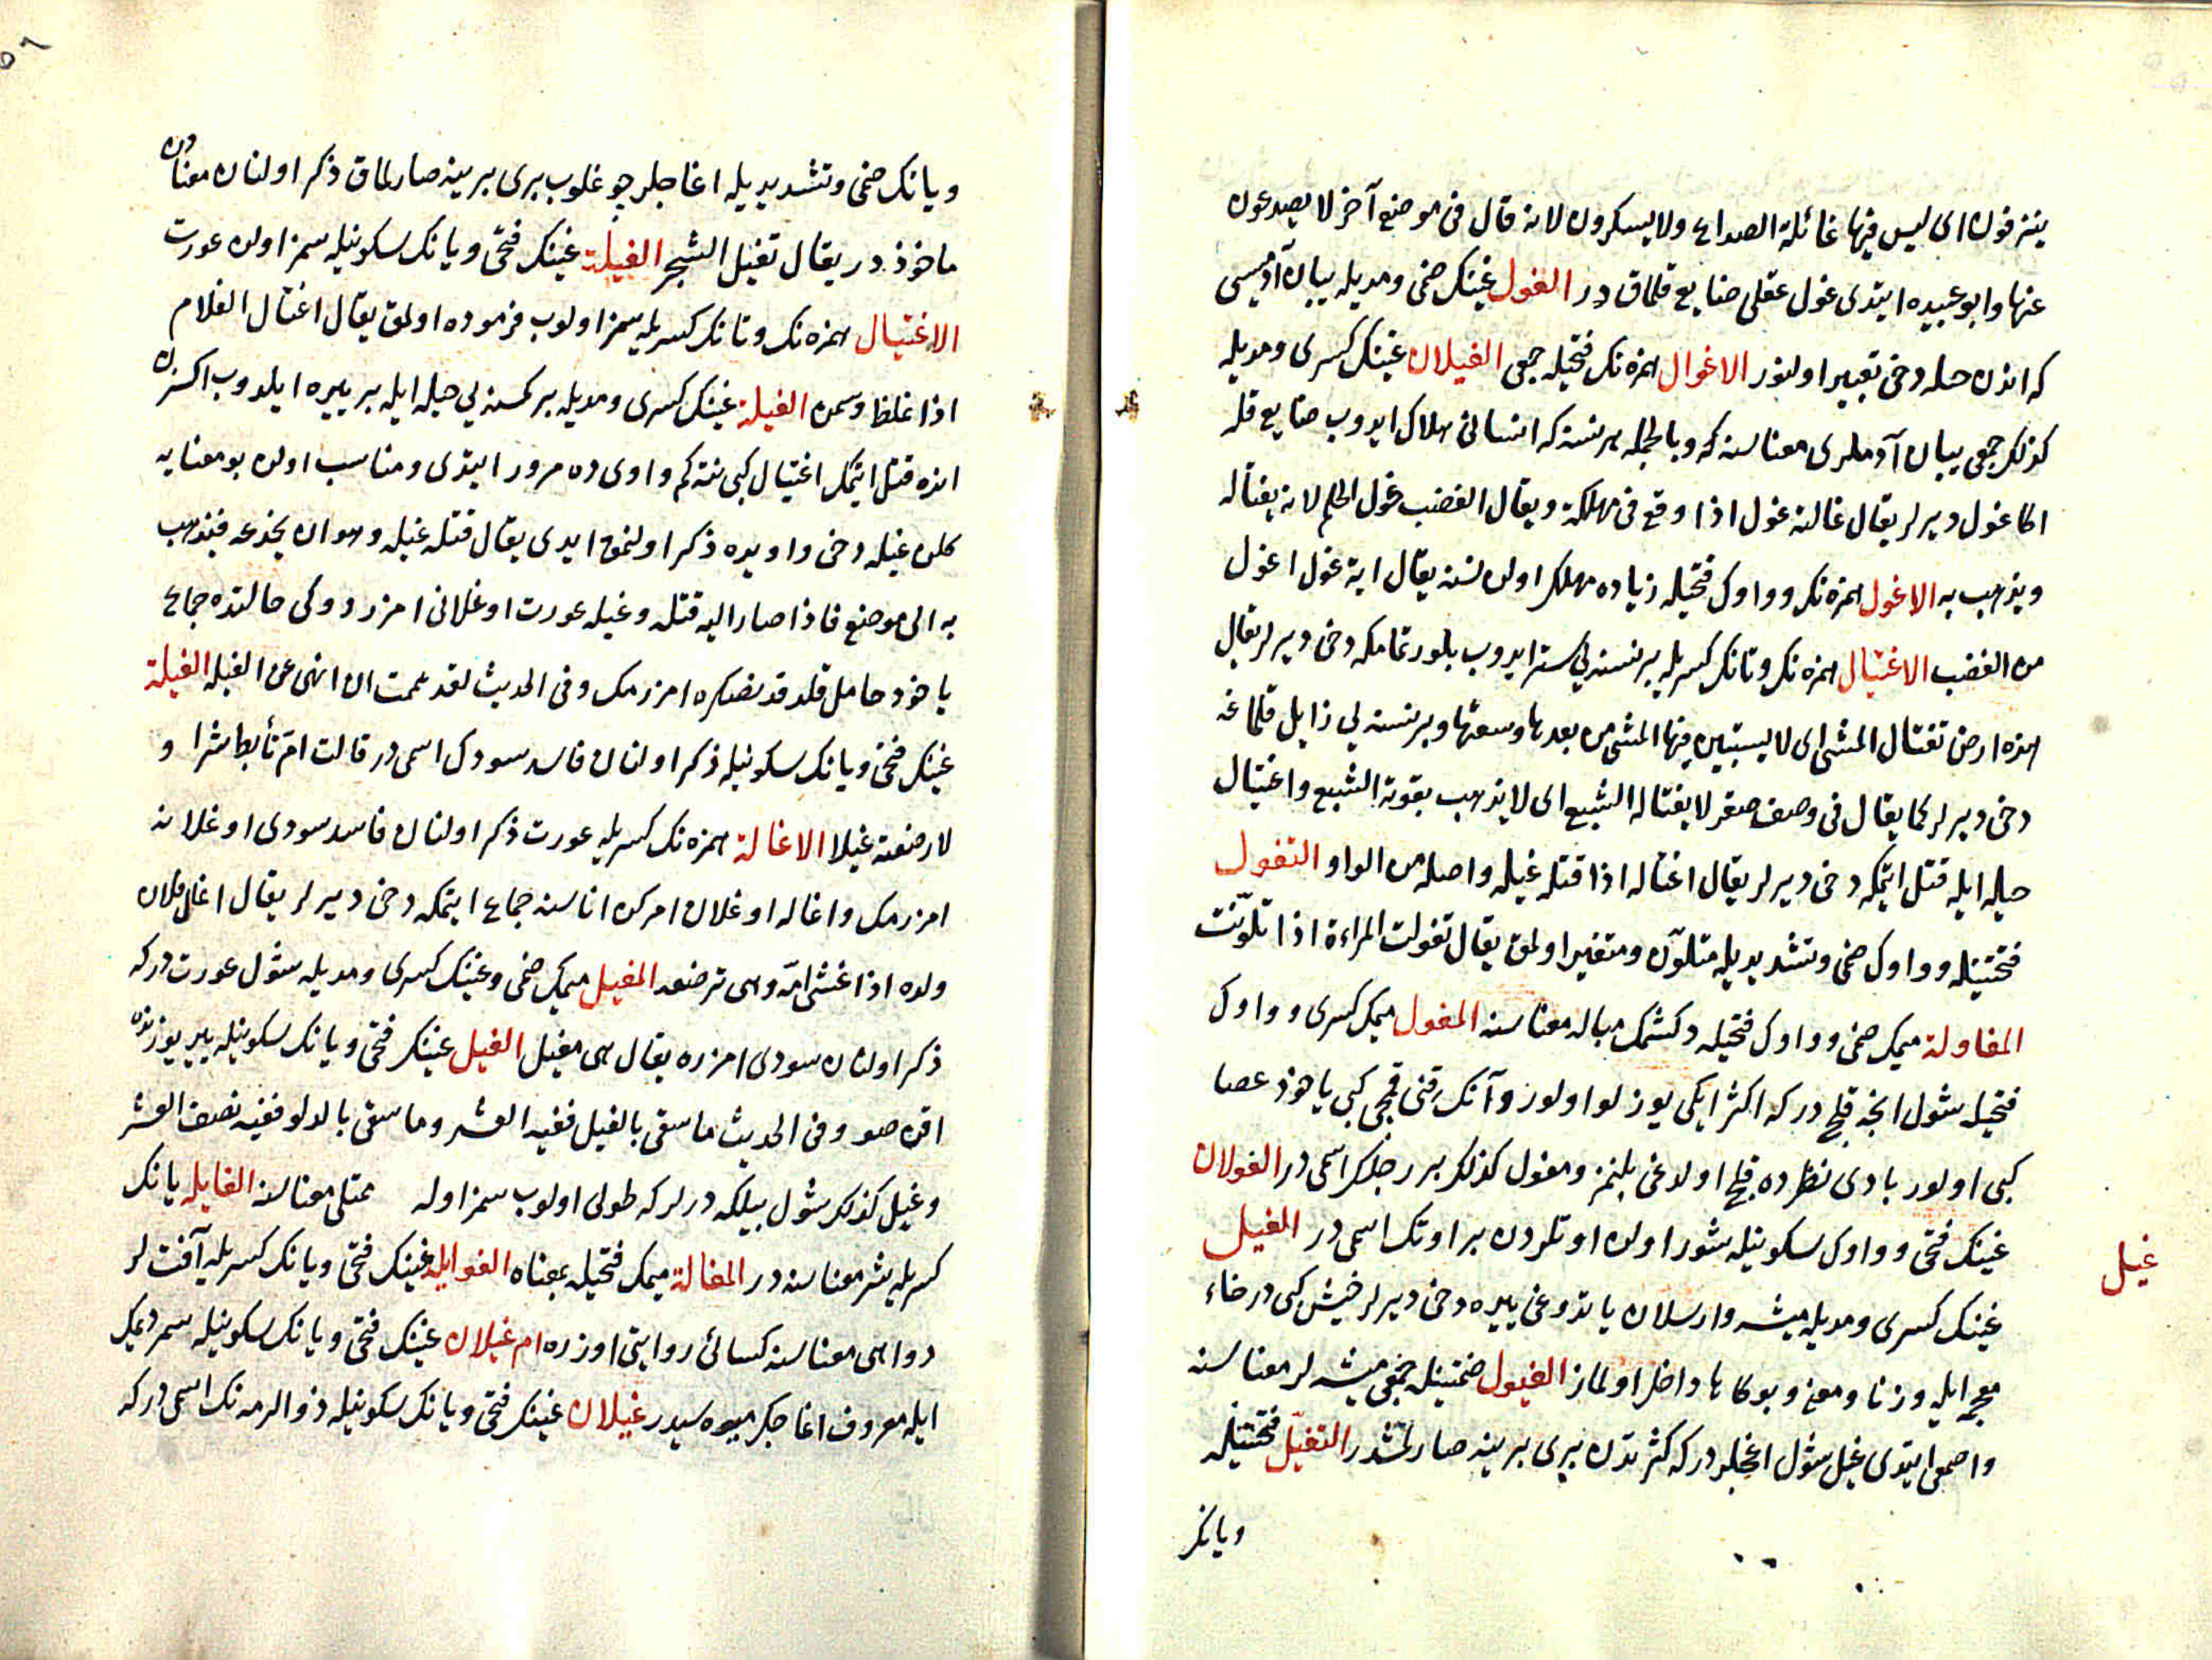 ينزفون اى ليس فيها غائلة الصداع ولا يسكرون لانه قال فى موضع آخر لا يصدعون
عنها وابو عبيده ايتدى غول عقلى ضايع قلماق در الغول غينك ضمى ومديله يبان آدميسى
كه اندن صله دخى تعبير اولنور الاغوال همزه نك فتحيله جمعى الغيلان غينك كسرى ومديله
كذلك جمعى يبان آدملرى معناسنه كه وبالجمله هر نسنه كه انسانى هلاك ايدوب ضايع قله
اكا غول ديرلر يقال غالته غول اذا وقع فى مهلكة ويقال الغضب غول الحلم لانه يغتاله
ويذهب به الاغول همزه نك وواوك فتحيله زياده مهلك اولان نسنه يقال اية غول اغول
من الغضب الاغتيال همزه نك وتانك كسريله بر نسنه يى ستر ايدوب بلورتمامكه دخى ديرلر يقال
هذه ارض تغتال المشى اى لا يستبين فيها المشى من بعدها وسعتها وبر نسنه يى زايل قلماغه
دخى ديرلر كما يقال فى وصف صقر لا يغتاله الشبع اى لا يذهب بقوته الشبع واغتيال
حيله ايله قتل ايتمكه دخى ديرلر يقال اغتاله اذا قتله غيله واصله من الواو التغول
فتحتينله وواوك ضمى وتشديديله متلون ومتغير اولمق يقال تغولت المراءة اذا تلونت
المغاولة ميمك ضمى وواوك فتحيله دكشمك مباله معناسنه المغول ميمك كسرى وواوك
فتحيله شول اينجه قلج در كه اكثر ايكى يوزلو اولور وآنك قنى قمچى كبى ياخوذ عصا
كبى اولور بادى نظرده قلج اولدغى بلنمز ومغول كذلك بر رجلك اسمى در الغولان
غينك فتحى وواوك سكونيله شور اولان اوتلردن بر اوتك اسمى در الغيل
غينك كسرى ومديله ميشه وارسلان ياتدوغى ييره دخى ديرلر خيش كبى در خاء
معجمه ايله وزنا ومعنى وبوكا ها داخل اولماز الغيول ضمتينله جمعى ميشه لر معناسنه
واصمعى ايتدى غيل شول اغجلر در كه كثرتدن برى برينه صارلمشدر التغيل فتحتينله
ويانك
غيل
ويانك ضمى وتشديديله اغاجلر چوغلوب برى برينه صارلماق ذكر اولنان معنادن
ماخوذ در يقال تغيل الشجر الغيلة غينك فتحى ويانك سكونيله سمز اولان عورت
الاغتيال همزه نك وتانك كسريله سمز اولوب فرموده اولمق يقال اغتال الغلام
اذا غلظ وسمن الغيلة غينك كسرى ومديله بر كمسنه يى حيله ايله بر ييره ايلدوب اكسزن
انده قتل ايتمك اغتيال كبى نته كم واوى ده مرور ايتدى ومناسب اولان بو معنايه
كلان غيله دخى واويده ذكر اولنمق ايدى يقال قتله غيله وهو ان يخدعه فيذهب
به الى موضع فاذا صار اليه قتله وغيله عورت اوغلانى امزردوكى حالتده جماع
ياخود حامل قلدقدنصكره امزرمك وفى الحديث لقد هممت ان انهى عن الغيله الغيلة
غينك فتحى ويانك سكونيله ذكر اولنان فاسد سودك اسمى در قالت ام تأبط شرا و
لا رضعته غيلا الاغالة همزه نك كسريله عورت ذكر اولنان فاسد سودى اوغلانه
امزرمك واغاله اوغلان امركن اناسنه جماع ايتمكه دخى ديرلر يقال اغال فلان
ولده اذا غشى امه وهى ترضعه المغيل ميمك ضمى وغينك كسرى ومديله شول عورت در كه
ذكر اولنان سودى امزره يقال هى مغيل الغيل غينك فتحى ويانك سكونيله يير يوزنده
اقان صو وفى الحديث ما سقى بالغيل ففيه العشر وما سقى بالدلو ففيه نصف العشر
وغيل كذلك شول بيلكه درلر كه طولى اولوب سمز اوله ممتلى معناسنه الغايله يانك
كسريله شر معناسنه در المغالة ميمك فتحيله بمعناه الغوايل غينك فتحى ويانك كسريله آفت لر
دواهى معناسنه كسائى روايتى اوزره ام غيلان غينك فتحى ويانك سكونيله سمر ديمك
ايله معروف اغاجك ميوه سيدر غيلان غينك فتحى ويانك سكونيله ذو الرمه نك اسمى در كه